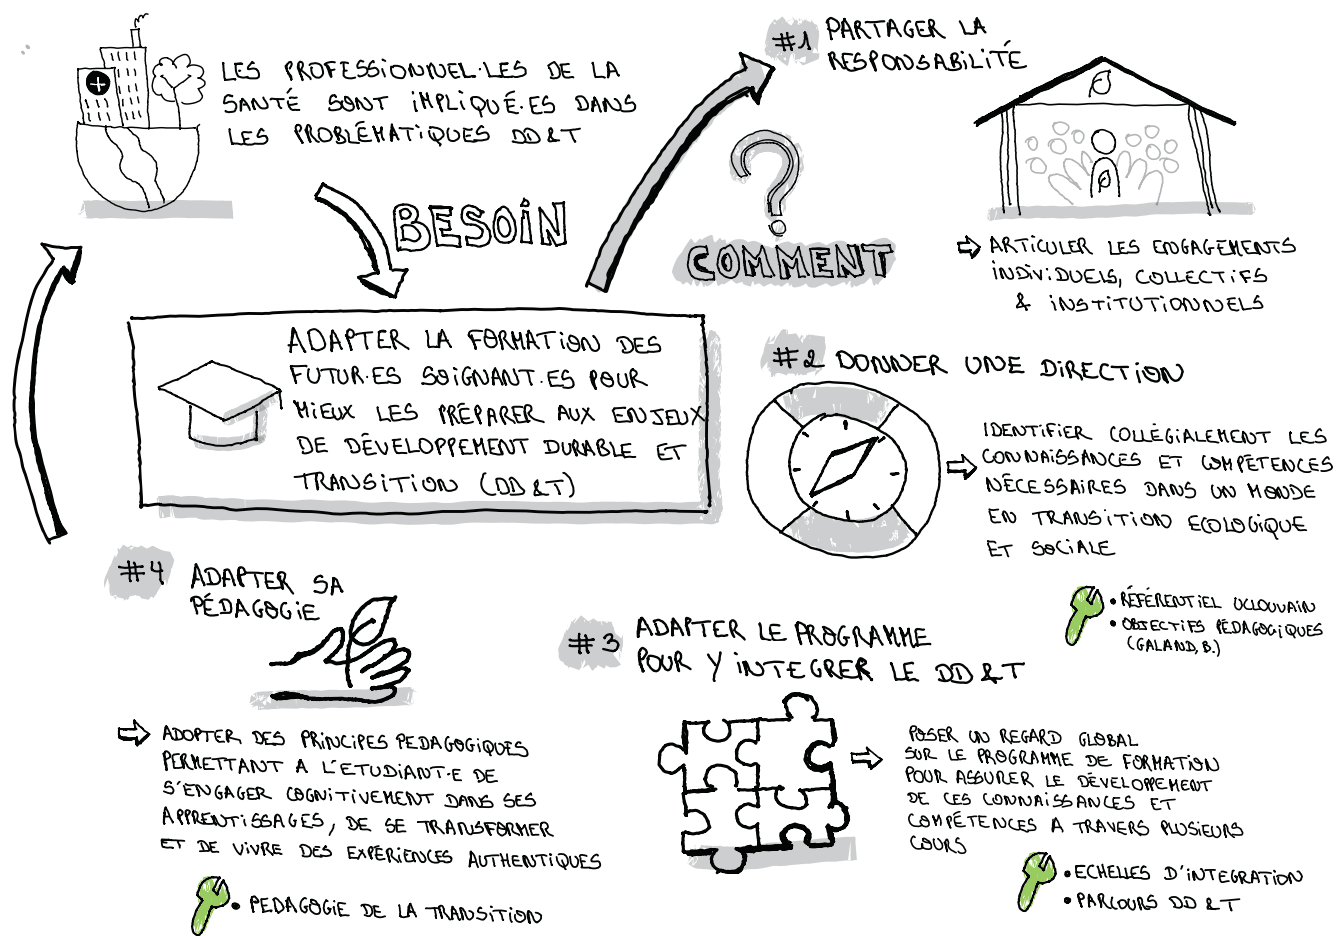 LES PROFESSIONNEL·LES DE LA
SANTÉ SONT IMPLIQUÉ·ES DANS
LES PROBLÉMATIQUES DD&T
BESOIN
ADAPTER LA FORMATION DES
FUTUR·ES SOIGNANT·ES POUR
MIEUX LES PRÉPARER AUX ENJEUX
DE DÉVELOPPEMENT DURABLE ET
TRANSITION (DD&T)
COMMENT
#1 PARTAGER LA
RESPONSABILITÉ
ARTICULER LES ENGAGEMENTS
INDIVIDUELS, COLLECTIFS
& INSTITUTIONNELS
#2 DONNER UNE DIRECTION
IDENTIFIER COLLÉGIALEMENT LES
CONNAISSANCES ET COMPÉTENCES
NÉCESSAIRES DANS UN MONDE
EN TRANSITION ECOLOGIQUE
ET SOCIALE
• RÉFÉRENTIEL UCLOUVAIN
• OBJECTIFS PÉDAGOGIQUES
(GALAND, B.)
#3 ADAPTER LE PROGRAMME
POUR Y INTEGRER LE DD&T
POSER UN REGARD GLOBAL
SUR LE PROGRAMME DE FORMATION
POUR ASSURER LE DÉVELOPPEMENT
DE CES CONNAISSANCES ET
COMPÉTENCES A TRAVERS PLUSIEURS
COURS
• ECHELLES D'INTEGRATION
• PARCOURS DD&T
#4 ADAPTER SA
PÉDAGOGIE
ADOPTER DES PRINCIPES PEDAGOGIQUES
PERMETTANT A L'ETUDIANT·E DE
S'ENGAGER COGNITIVEMENT DANS SES
APPRENTISSAGES, DE SE TRANSFORMER
ET DE VIVRE DES EXPÉRIENCES AUTHENTIQUES
• PEDAGOGIE DE LA TRANSITION